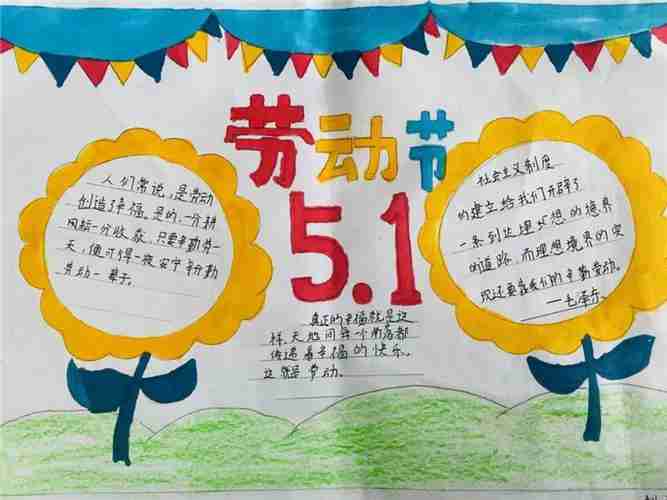 劳动节
5.1
人们常说,是劳动
创造了幸福。是的,一分耕
耘一分收获,只要辛勤劳一
天,便可得一夜安宁;辛勤
劳动一辈子。
社会主义制度
的建立给我们开辟了
一条到达理想的境界
的道路,而理想境界的实
现还要靠我们的辛勤劳动。
——毛泽东
真正的幸福就是这
样,天地间每一个角落都
传递着幸福的快乐。
这就是劳动。